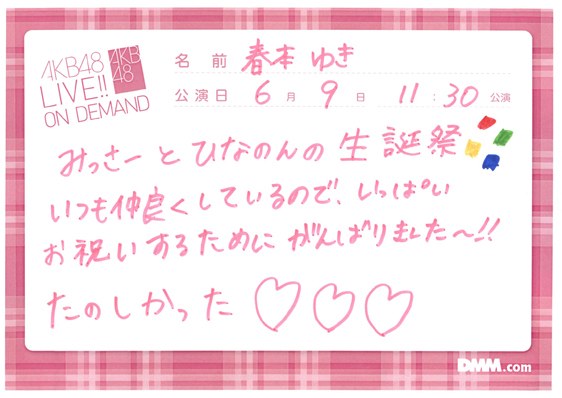 AKB48
LIVE!!
ON DEMAND
AKB
48
名前 春本 ゆき
公演日 6月 9日 11:30 公演
みっさーとひなのんの生誕祭
いつも仲良くしているので、いっぱい
お祝いするためにがんばりました〜!!
たのしかった ♡♡♡
DMM.com